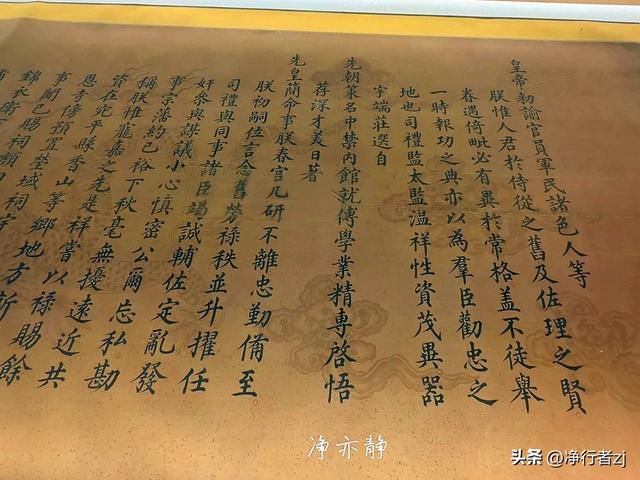 皇帝勑諭官員軍民諸色人等
朕惟人君於侍從之舊及佐理之賢
眷遇倚毗必有異於常格盖不徒舉
一時報功之典亦以為羣臣勸忠之
地也司禮監太監温祥性資茂異器
宇端莊選自
先朝策名中禁內館就傅學業精專啓悟
荐深才美日著
先皇簡命事朕春宮几研不離忠勤備至
朕初嗣位言念舊勞祿秩並升擢任
司禮與同事諸臣竭誠輔佐定亂發
奸衆與謀議小心慎密公爾忘私勘
事宗藩約已裕下秋毫無擾遠近共
稱朕惟寵嘉之先是祥嘗以祿賜餘
資在宛平縣香山等鄉地方新
恩寺傍預置塋域祠宇
事聞已賜祠額曰
錦衣衛
净亦静
头条 @净行者zj